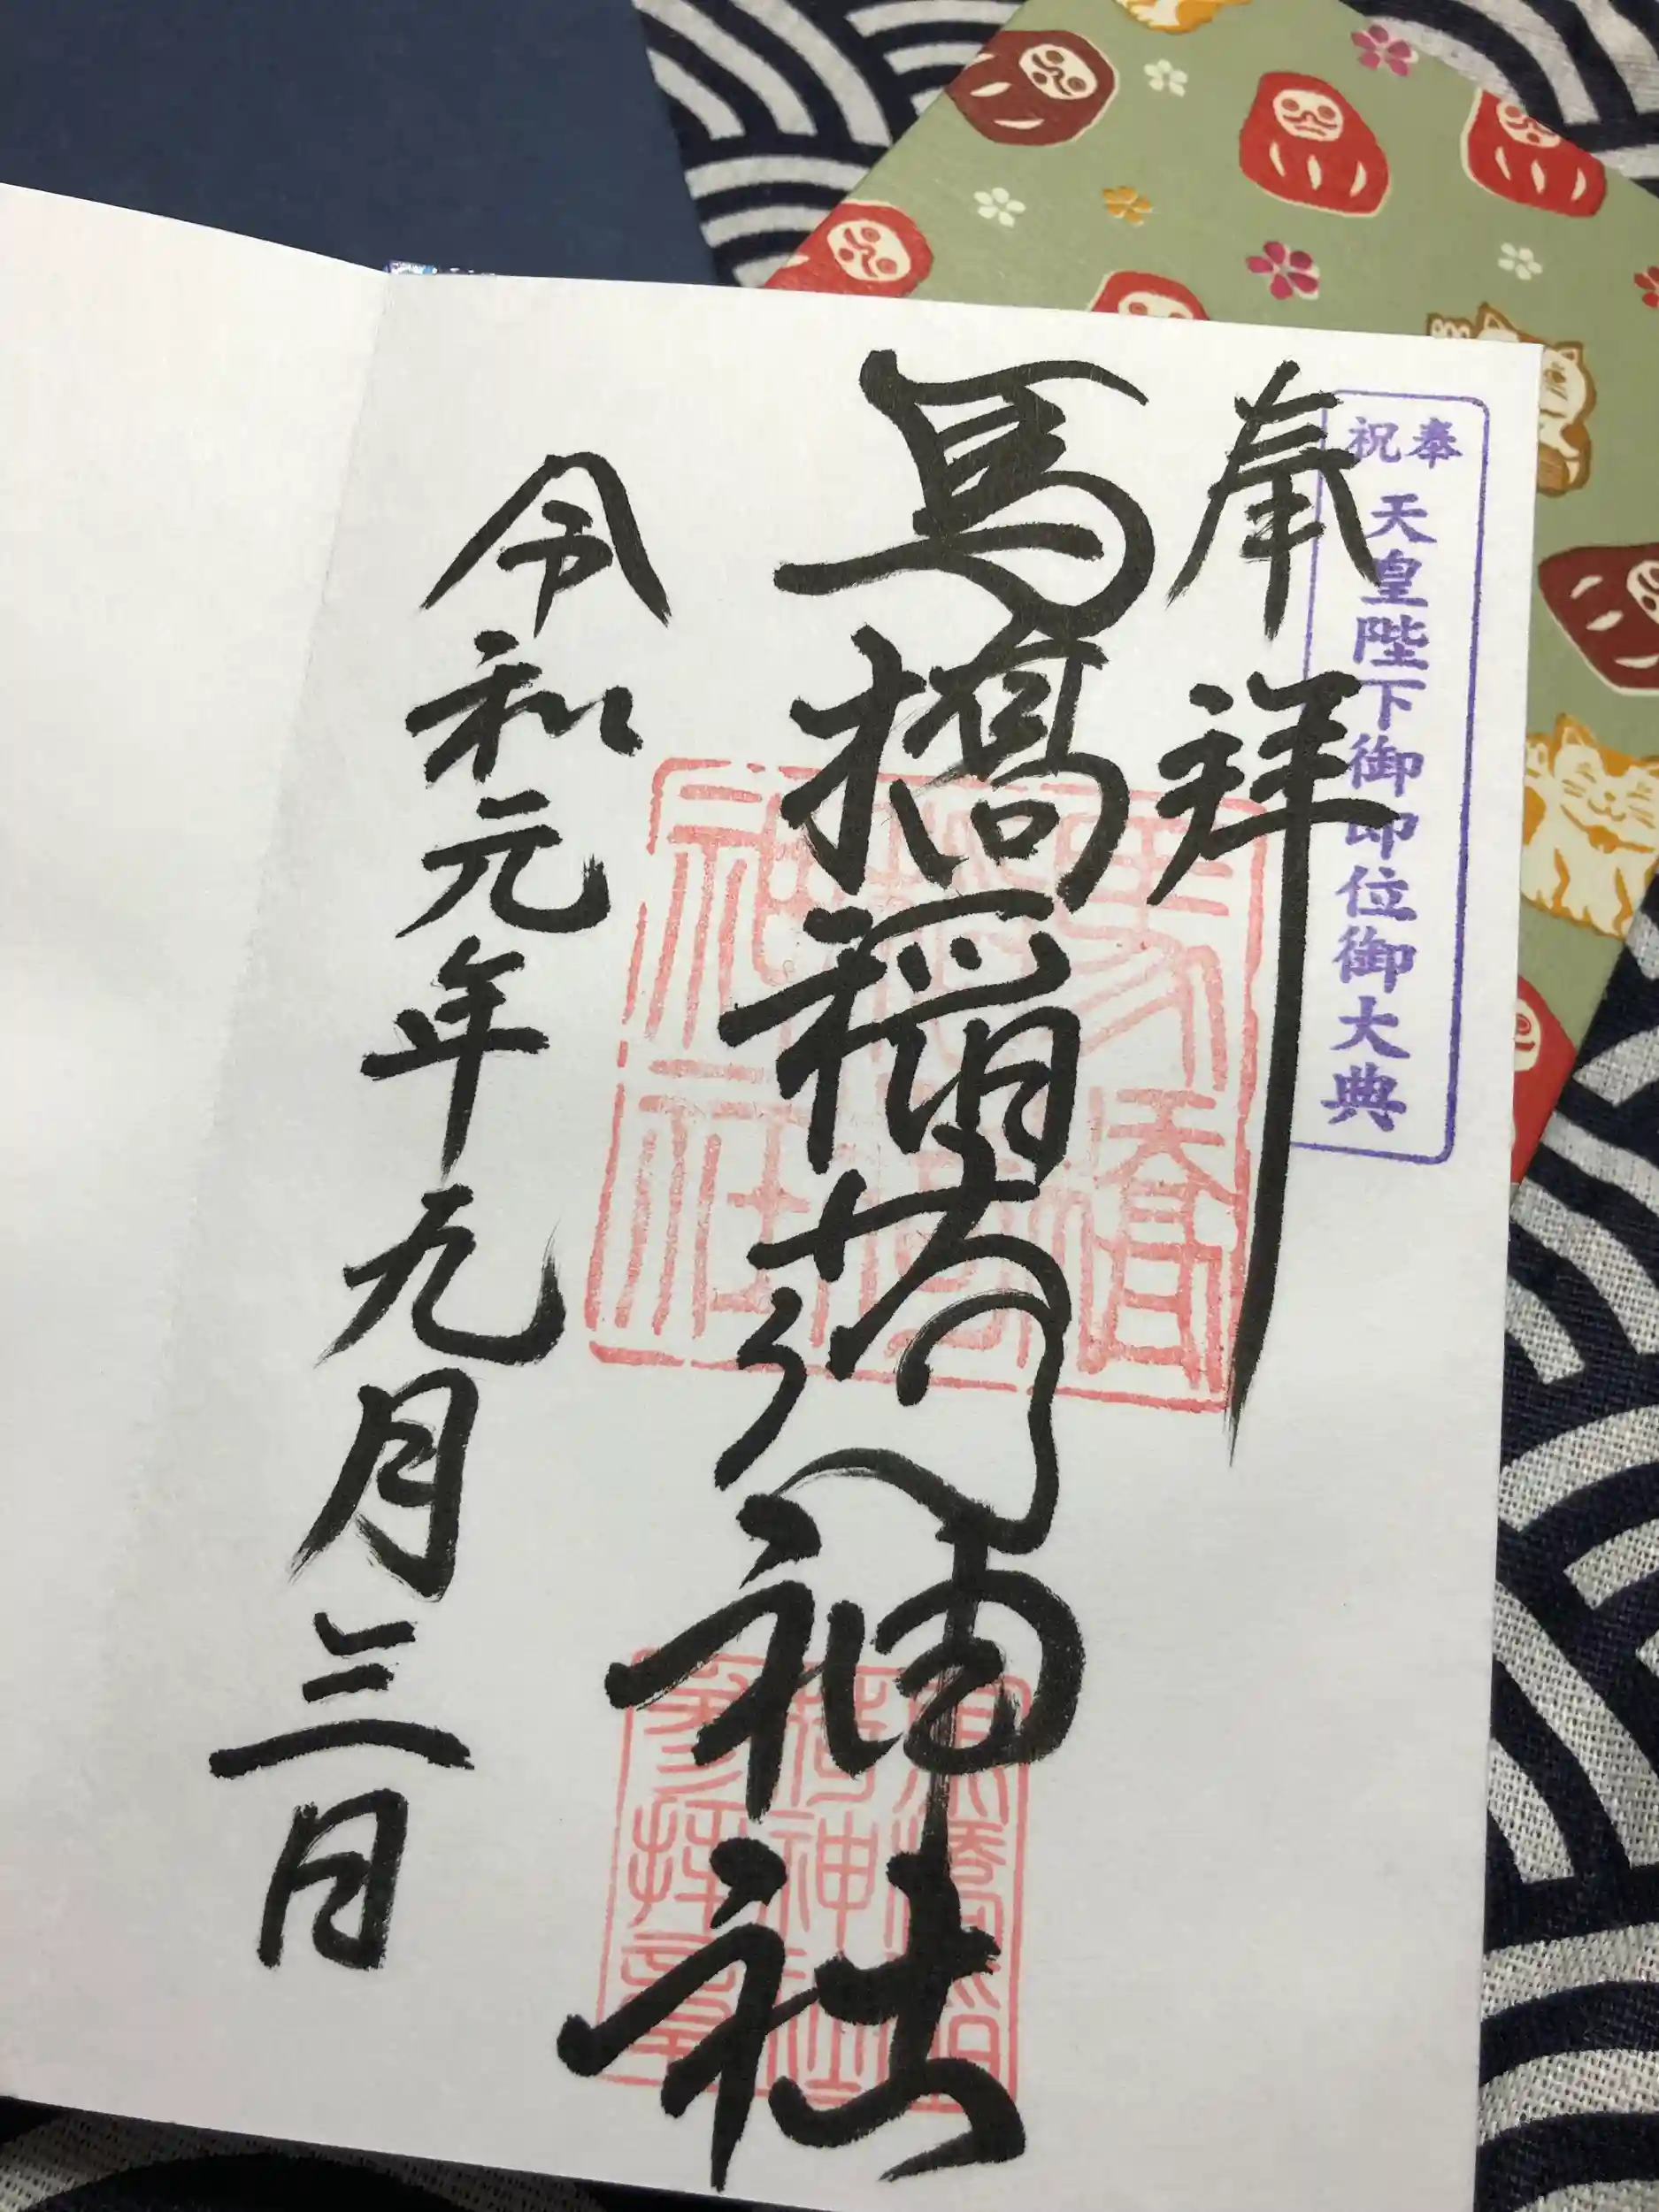 奉祝
天皇陛下御即位御大典
奉拝
馬橋稲荷神社
令和元年九月三日
馬橋稲荷神社